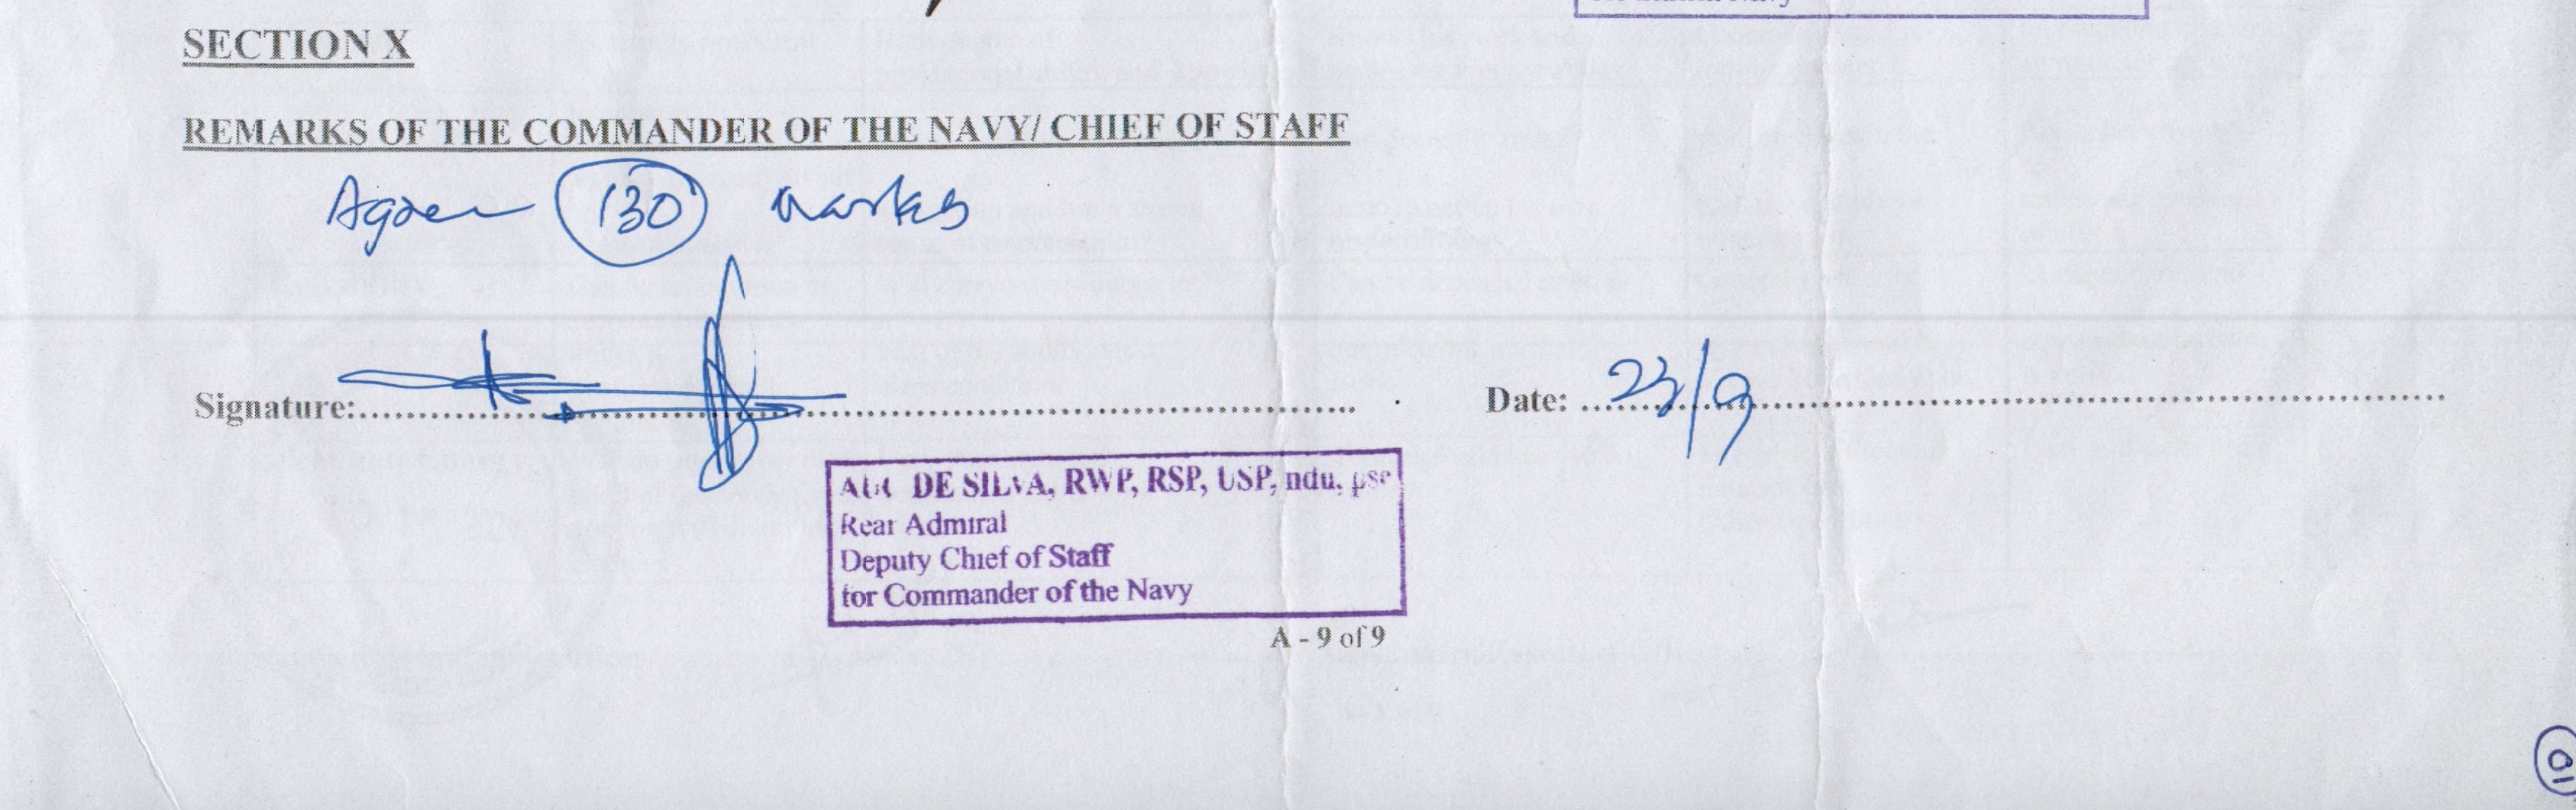 SECTION X
REMARKS OF THE COMMANDER OF THE NAVY/ CHIEF OF STAFF
Agree 130 marks
Signature:
Date: 23/9
DE SILVA, RWP, RSP, USP, ndu, psc
Rear Admiral
Deputy Chief of Staff
for Commander of the Navy
A - 9 of 9